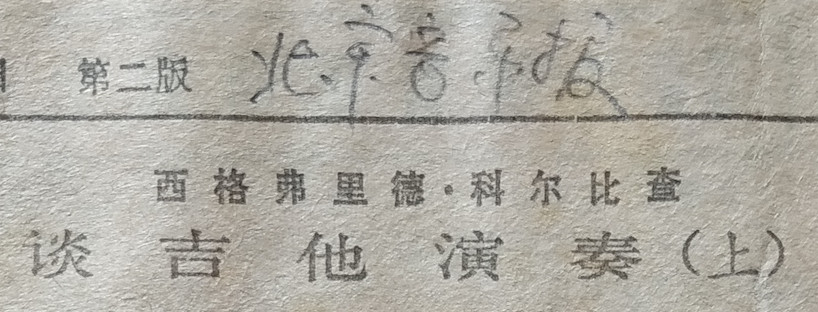 第二版 北京音乐报
西格弗里德·科尔比查
谈吉他演奏(上)